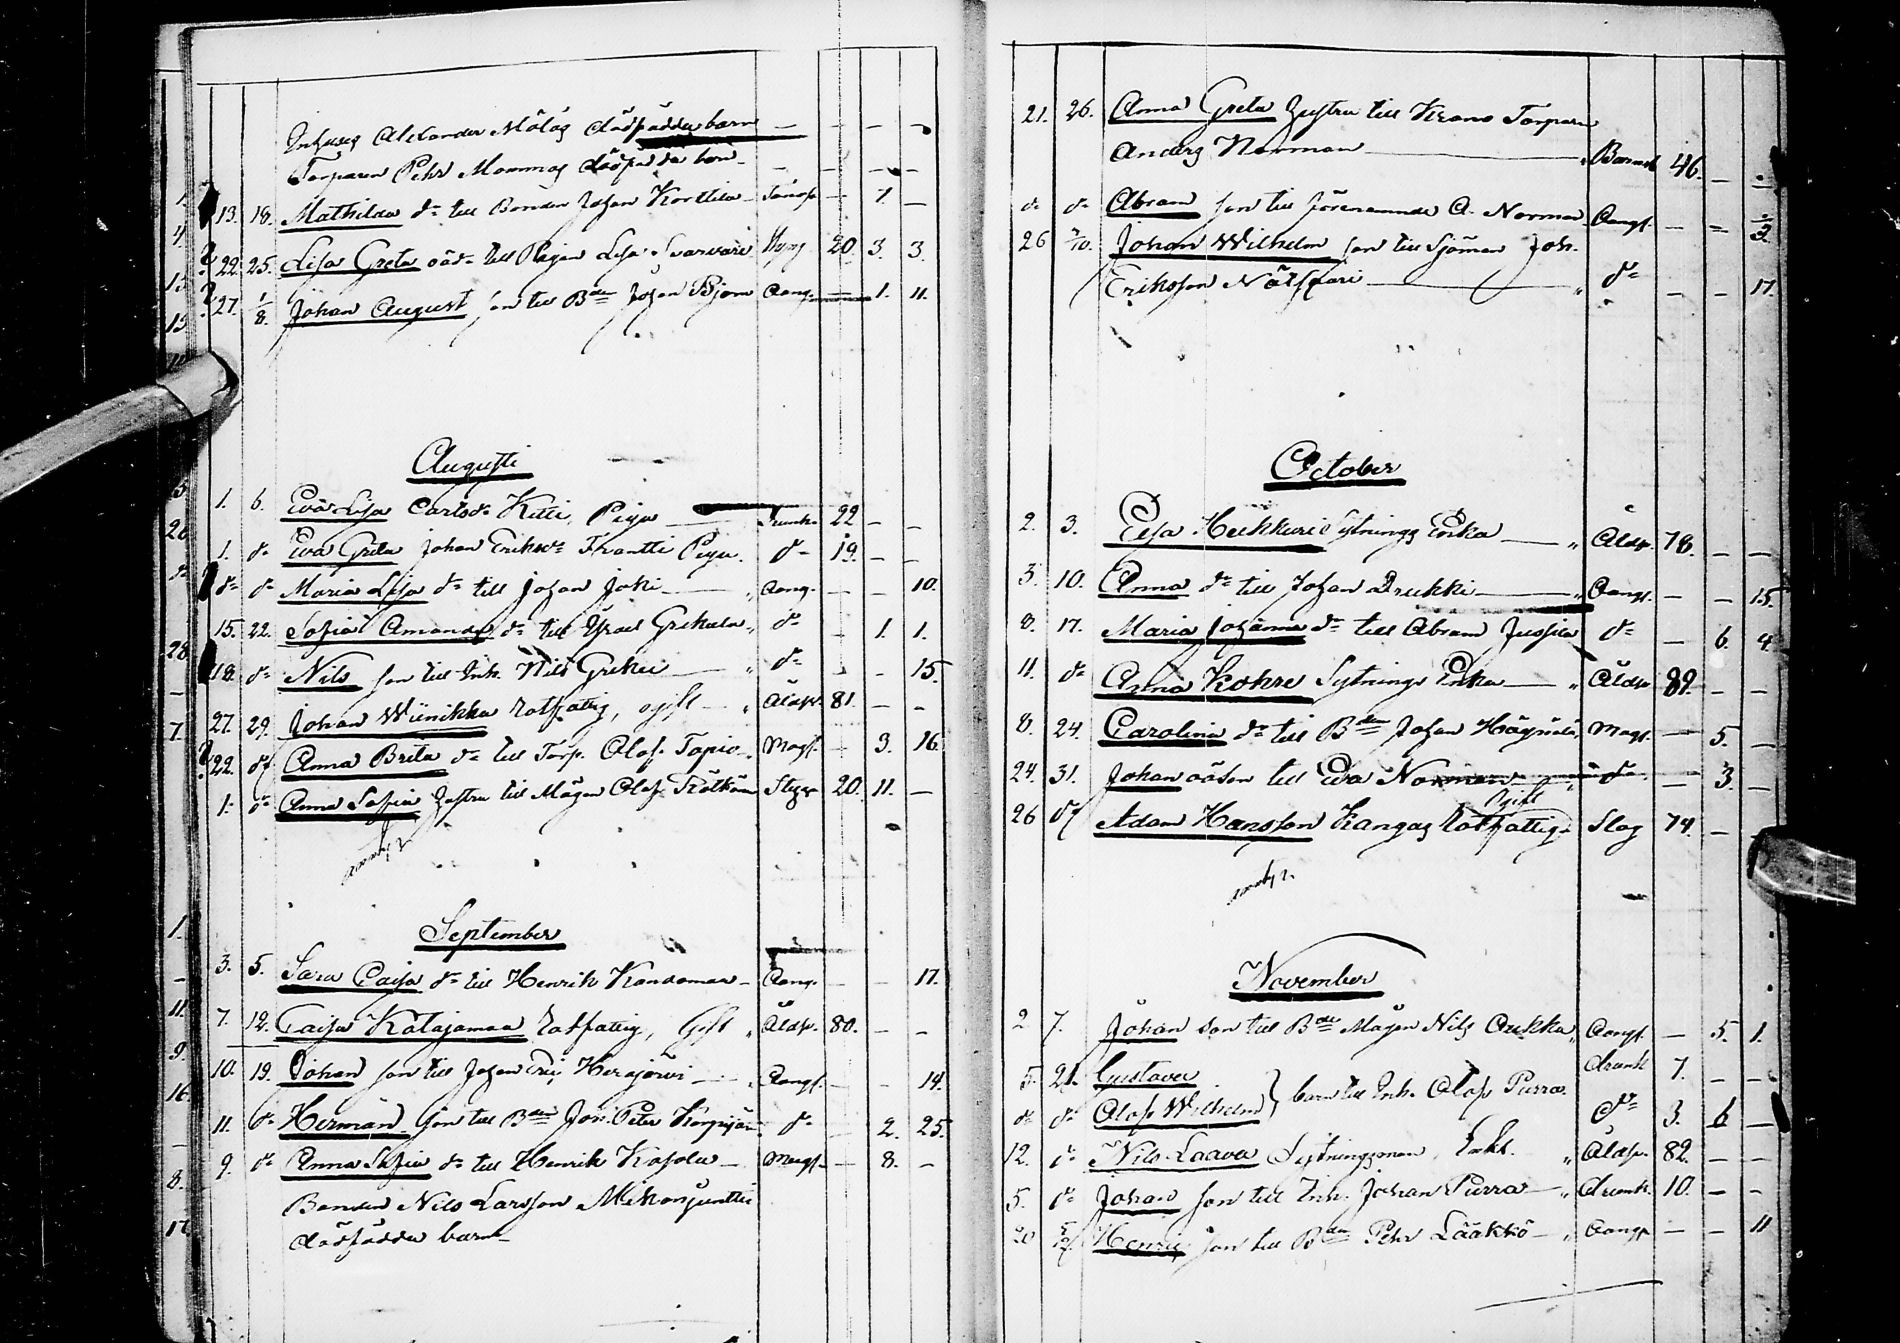 Inhyses Alexander Mälös dödfödda barn — — — —
Torparen Pehr Mommos dödfödda barn — — — —
13. 18. Mathilda dr till Bonden Johan Korttila — — 1. —
22. 25. Lisa Greta oä dr till Pigan Lisa 20. 3. 3.
27. 1/8. Johan August son till Bden Johan Björn Aang. — 1. 11.
Augusti
1. 6. Eva Lisa Carlsdr Kitti, Piga Drunk. 22 — —
1. dr Eva Greta Johan Eriksdr Frantti Piga. dr 19. — —
dr dr Maria Lisa dr till Johan Joki — Aang. — — 10.
15. 22. Sofia Amanda dr till Israel Grekula dr — 1. 1.
18. dr Nils son till Inh. Nils Greku — dr — — 15.
27. 29. Johan Wiinikka Rotfattig, ogift — Åldr. 81. — —
22. dr Anna Brita dr till Torp. Olof Tapio. Magf. — 3. 16.
1. dr Anna Sofia Hustru till Mågen Olof 20. 11. —
September
3. 5. Sara Caisa dr till Henrik Kandamaa — Aang. — — 17.
7. 12. Caisa Katajamaa Rotfattig, Gift Åldr. 80. — —
10. 19. Johan son till Johan Eric Herajärvi — Aangf. — — 14.
11. dr Herman son till Bden Joh. Peter dr — 2. 25.
9. dr Anna Sofia dr till Henrik Kasola — Magf. — 8. —
Bonden Nils Larsson Mikonjuntti
dödfödda barn
21. 26. Anna Greta Hustru till Krono Torparen
Anders Norman — Barnsb. 46. — —
dr dr Abram son till förenämnde A. Norman Aangf. — — 3.
26 2/10. Johan Wilhelm son till Sjöman Joh.
Eriksson — dr — — 17.
October
2. 3. Elsa Heikkuri Sytnings Enka — Åldr. 78. — —
3. 10. Anna dr till Johan Drukki — Aangf. — — 15.
8. 17. Maria Johanna dr till Abram Jussila dr — 6. 4
11. dr Anna Kohre Sytnings Enka — Åldr 89. — —
8. 24. Carolina dr till Bden Johan Magf. — 5. —
24. 31. Johan oä son till Eva Norman dr — 3. —
Ogift
26 dr Adam Hansson Kangas Rotfattig. Slag 74. —
November
2 7. Johan son till Bde Mågen Nils Aukka Aangf. — 5. 1.
5. 21. Gustava } Drunk 7. — —
dr dr Olof Wilhelm } barn till Inh. Olof Purra. dr 3. 6 —
12. dr Nils Laava Sytningsman, Enkl. Åldr. 82. — —
5. dr Johan son till Inh. Johan Purra — drunk. 10. — —
20 5/12 Henric son till Bden Pehr Lääkkö — Aangf. — — 11